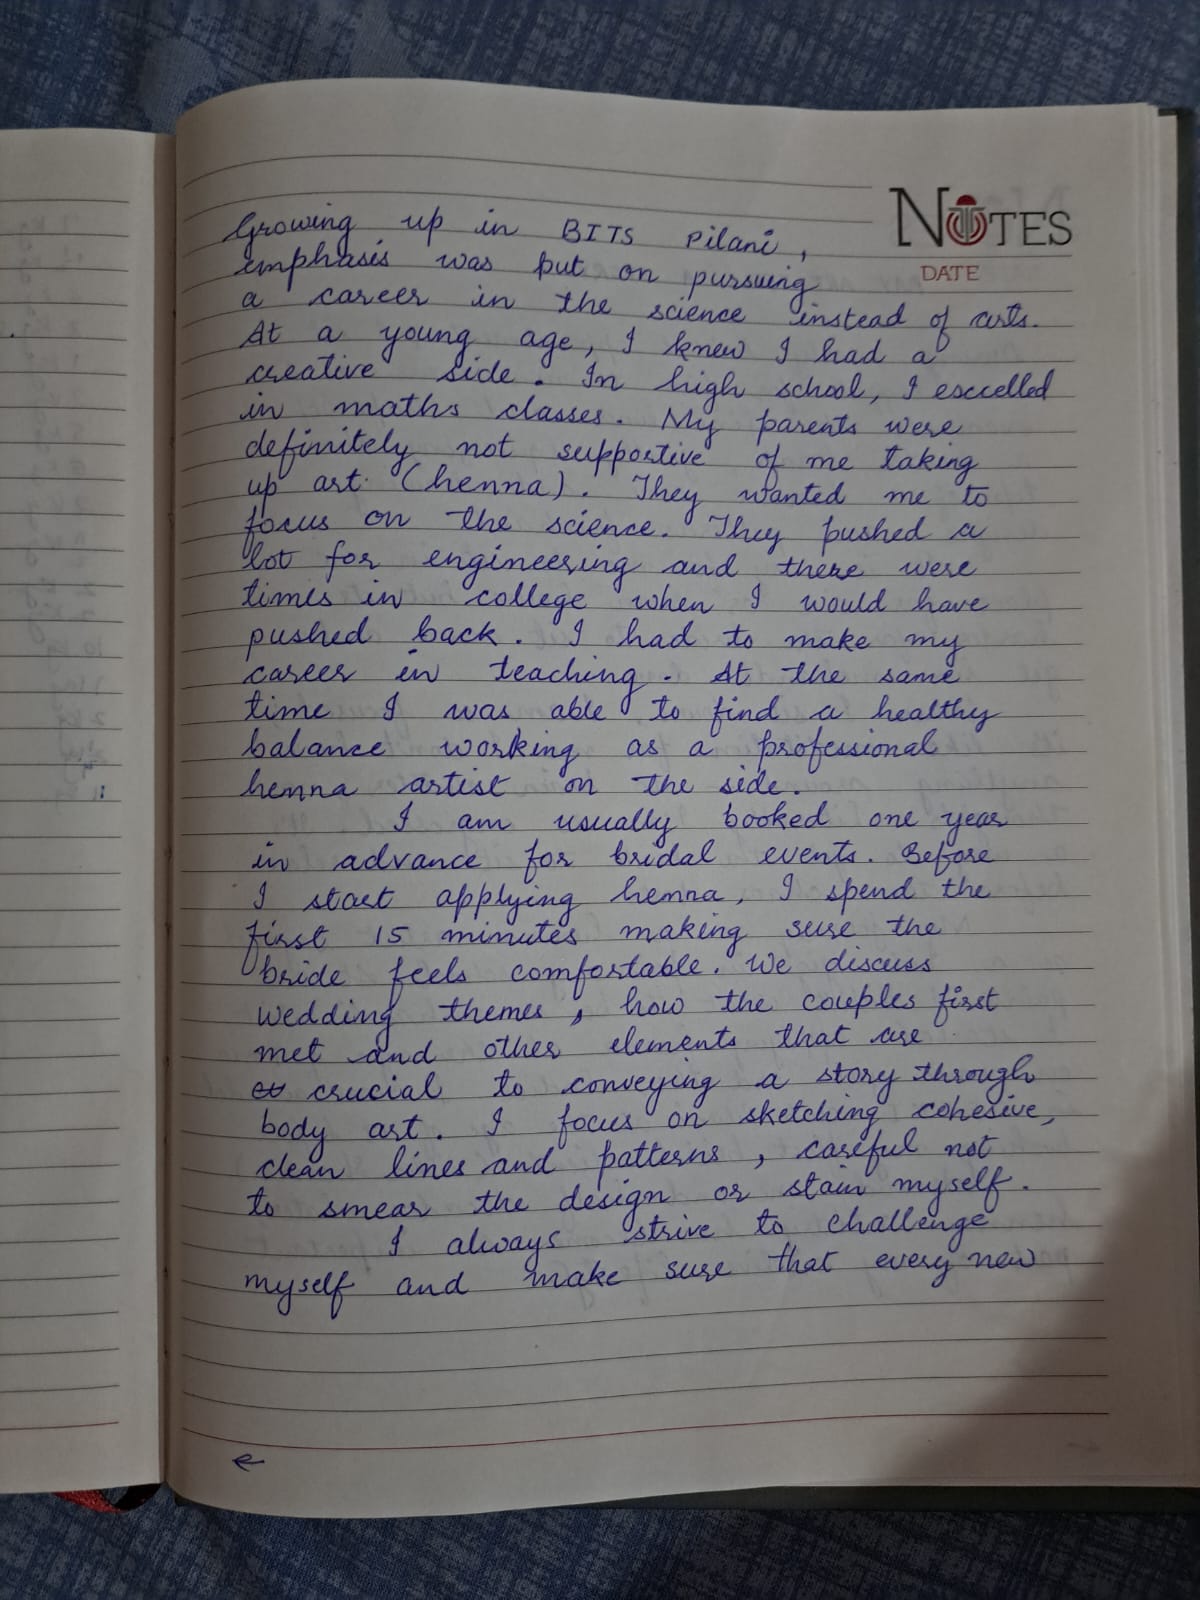 NOTES
DATE
Growing up in BITS Pilani,
emphasis was put on pursuing
a career in the science instead of arts.
At a young age, I knew I had a
creative side. In high school, I excelled
in maths classes. My parents were
definitely not supportive of me taking
up art (henna). They wanted me to
focus on the science. They pushed a
lot for engineering and there were
times in college when I would have
pushed back. I had to make my
career in teaching. At the same
time I was able to find a healthy
balance working as a professional
henna artist on the side.
I am usually booked one year
in advance for bridal events. Before
I start applying henna, I spend the
first 15 minutes making sure the
bride feels comfortable. We discuss
wedding themes, how the couples first
met and other elements that are
crucial to conveying a story through
body art. I focus on sketching cohesive,
clean lines and patterns, careful not
to smear the design or stain myself.
I always strive to challenge
myself and make sure that every new
←